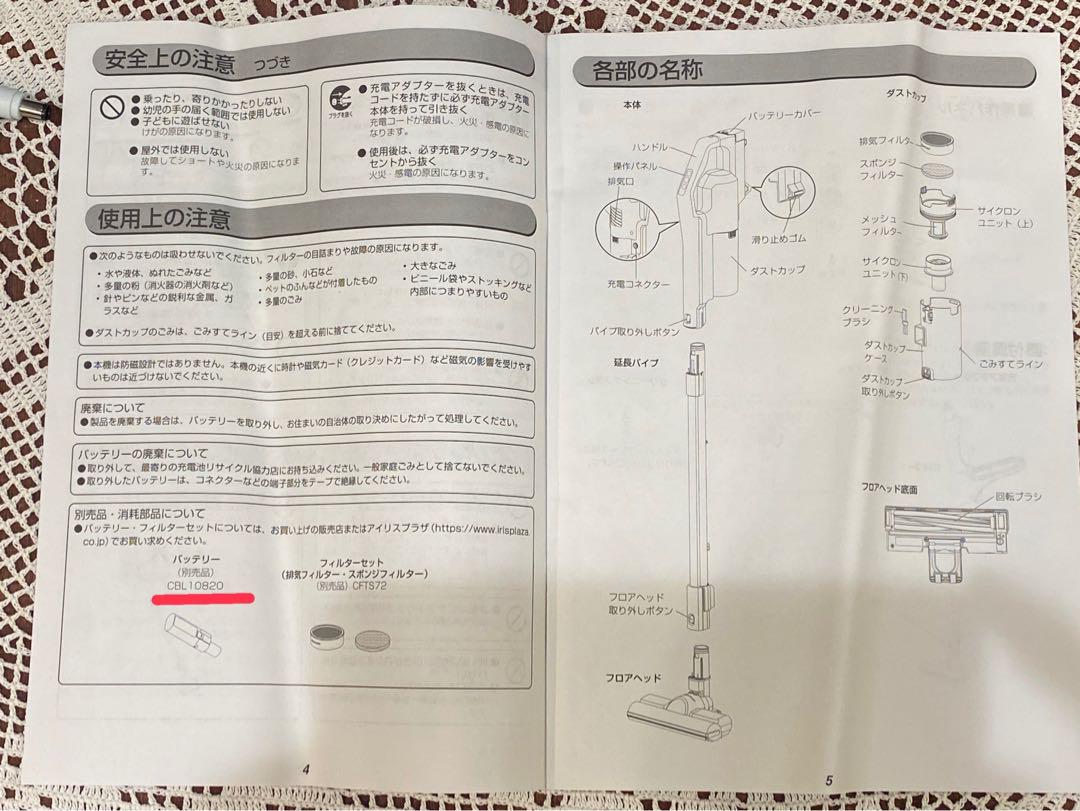 安全上の注意 つづき
●乗ったり、寄りかかったりしない
●幼児の手の届く範囲では使用しない
●子どもに遊ばせない
けがの原因になります。
●屋外では使用しない
故障してショートや火災の原因になりま
す。
プラグを抜く
●充電アダプターを抜くときは、充電
コードを持たずに必ず充電アダプター
本体を持って引き抜く
充電コードが破損し、火災・感電の原因に
なります。
●使用後は、必ず充電アダプターをコン
セントから抜く
火災・感電の原因になります。
使用上の注意
●次のようなものは吸わせないでください。フィルターの目詰まりや故障の原因になります。
・水や液体、ぬれたごみなど
・多量の粉（消火器の消火剤など）
・針やピンなどの鋭利な金属、ガ
ラスなど
・多量の砂、小石など
・ペットのふんなどが付着したもの
・多量のごみ
・大きなごみ
・ビニール袋やストッキングなど
内部につまりやすいもの
●ダストカップのごみは、ごみすてライン（目安）を超える前に捨ててください。
●本機は防磁設計ではありません。本機の近くに時計や磁気カード（クレジットカード）など磁気の影響を受けやす
いものは近づけないでください。
廃棄について
●製品を廃棄する場合は、バッテリーを取り外し、お住まいの自治体の取り決めにしたがって処理してください。
バッテリーの廃棄について
●取り外して、最寄りの充電池リサイクル協力店にお持ち込みください。一般家庭ごみとして捨てないでください。
●取り外したバッテリーは、コネクターなどの端子部分をテープで絶縁してください。
別売品・消耗部品について
●バッテリー・フィルターセットについては、お買い上げの販売店またはアイリスプラザ（https://www.irisplaza.
co.jp）でお買い求めください。
バッテリー
（別売品）
CBL10820
フィルターセット
（排気フィルター・スポンジフィルター）
（別売品）CFTS72
4
各部の名称
本体
バッテリーカバー
ハンドル
操作パネル
排気口
滑り止めゴム
ダストカップ
充電コネクター
パイプ取り外しボタン
延長パイプ
フロアヘッド
取り外しボタン
フロアヘッド
ダストカップ
排気フィルター
スポンジ
フィルター
サイクロン
ユニット（上）
メッシュ
フィルター
サイクロン
ユニット（下）
クリーニング
ブラシ
ダストカップ
ケース
ごみすてライン
ダストカップ
取り外しボタン
フロアヘッド底面
回転ブラシ
5